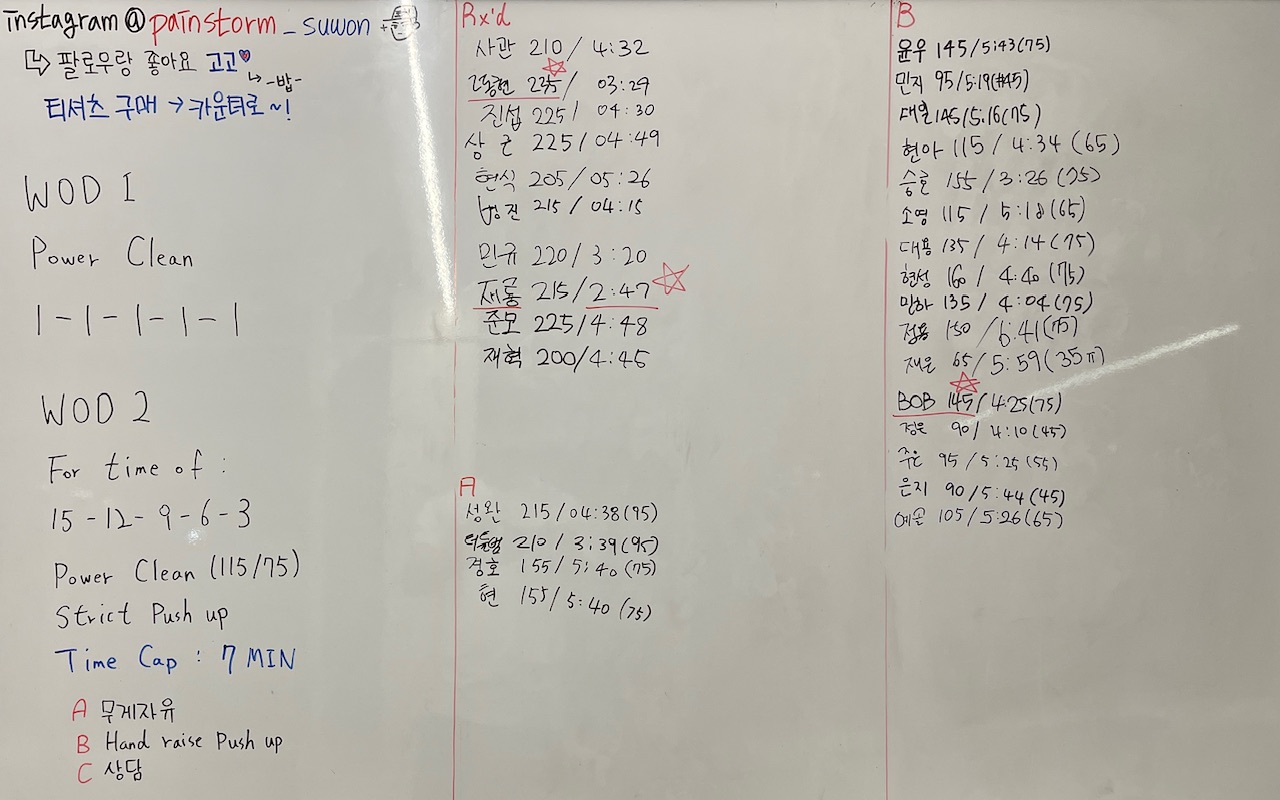 instagram@painstorm_suwon
팔로우랑 좋아요 고고
-밥-
티셔츠 구매 → 카운터로~!
WOD 1
Power Clean
1-1-1-1-1
WOD 2
For time of :
15-12-9-6-3
Power Clean (115/75)
Strict Push up
Time Cap : 7 MIN
A 무게자유
B Hand raise Push up
C 상담
Rx'd
사관 210/ 4:32
235/ 03:29
진섭 225/ 04:30
상근 225/04:49
현식 205/05:26
병진 215/04:15
민규 220/3:20
재롱 215/2:47
준모 225/4:48
재혁 200/4:45
A
성완 215/04:38(95)
210/3:39(95)
경호 155/5:40(75)
현 155/5:40(75)
B
윤우 145/5:43(75)
민지 95/5:19(45)
145/5:16(75)
현아 115/4:34(65)
155/3:26(75)
소영 115/5:18(65)
대용 135/4:14(75)
현성 160/4:40(75)
135/4:04(75)
정용 150/6:41(75)
재은 65/5:59(35)
BOB 145/4:25(75)
정은 90/4:10(45)
주은 95/5:25(55)
은지 90/5:44(45)
105/5:26(65)